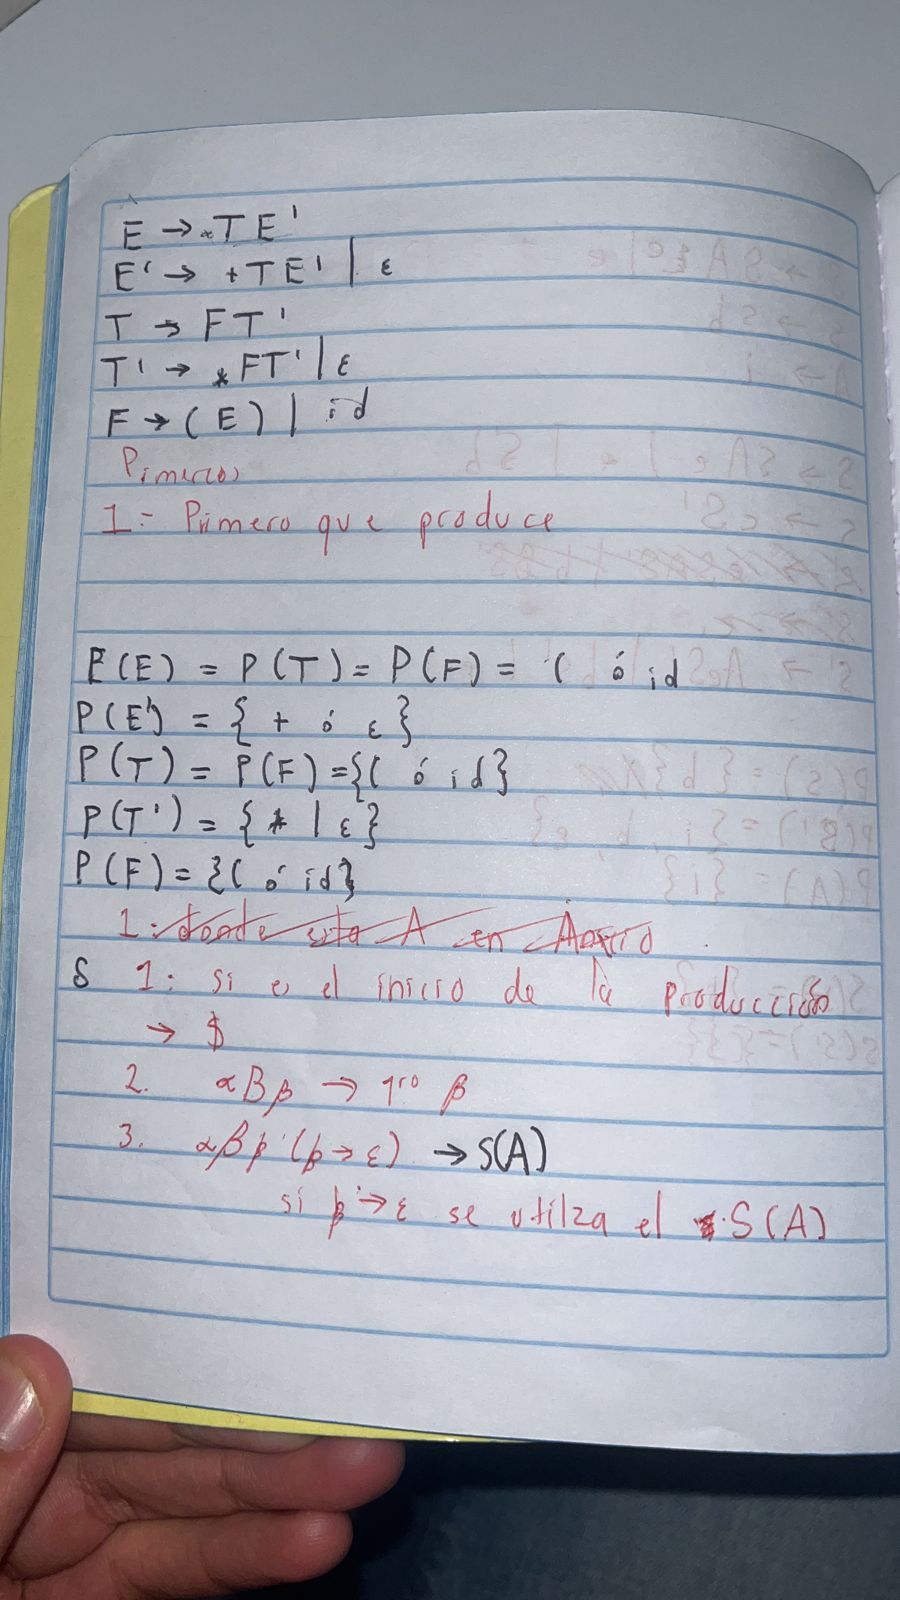 E → αTE'
E' → +TE' | ε
T → FT'
T' → *FT' | ε
F → (E) | id
Pimeros
1= Primero que produce
P(E) = P(T) = P(F) = ( ó id
P(E') = { + ó ε}
P(T) = P(F) = {( ó id}
P(T') = {* | ε}
P(F) = {( ó id}
1: donde esta A en
S 1: si es el inicio de la producción
→ $
2. αBβ → 1ro β
3. αββ (β → ε) → S(A)
si β → ε se utilza el S(A)